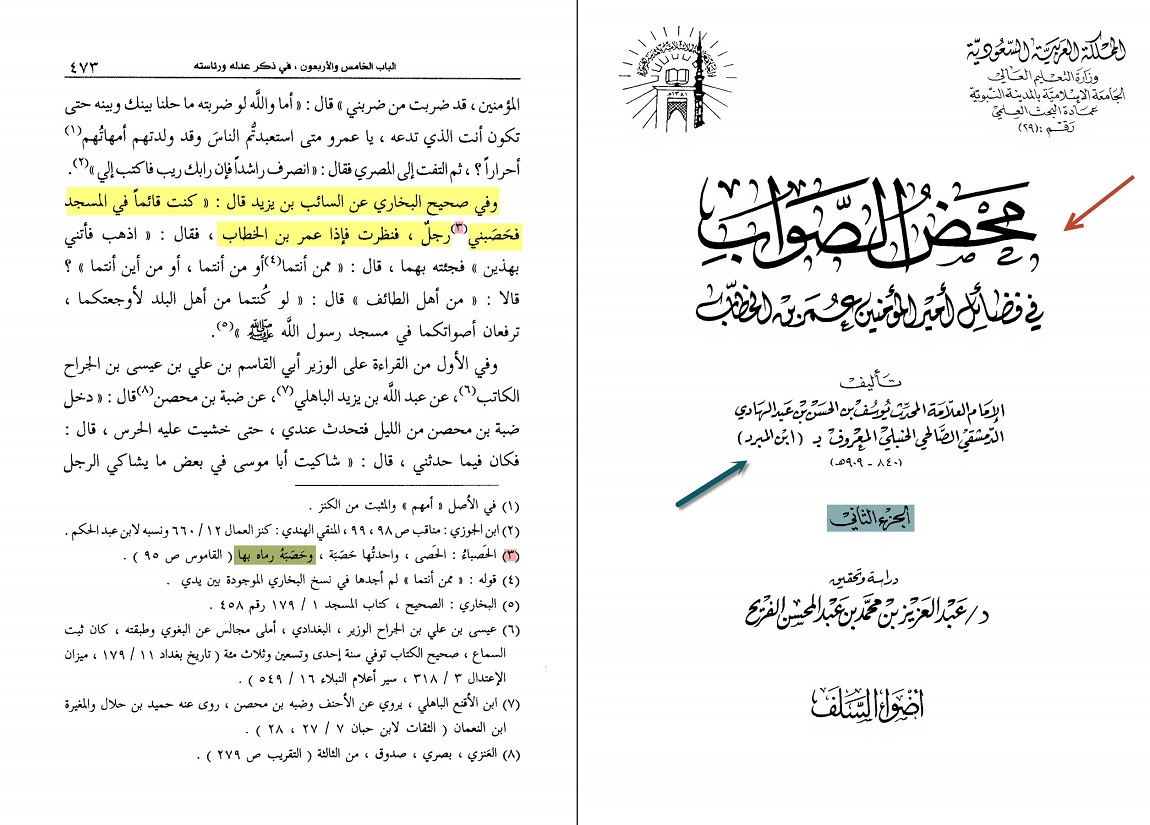 المملكة العربية السعودية
وزارة التعليم العالي
الجامعة الإسلامية بالمدينة النبوية
عمادة البحث العلمي
رقم : (٢٩)
١٣٨١هـ
محض الصواب
في فضائل أمير المؤمنين عمر بن الخطاب
تأليف
الإمام العلامة المحدث يوسف بن الحسن بن عبد الهادي
الدمشقي الصالحي الحنبلي المعروف بـ ( ابن المبرد )
(٨٤٠ - ٩٠٩هـ)
الجزء الثاني
دراسة وتحقيق
د/عبد العزيز بن محمد بن عبد المحسن الفريح
أضواء السلف
الباب الخامس والأربعون ، في ذكر عدله ورئاسته ٤٧٣
المؤمنين ، قد ضربت من ضربني » قال : « أما واللَّه لو ضربته ما حلنا بينك وبينه حتى
تكون أنت الذي تدعه ، يا عمرو متى استعبدتُّم الناسَ وقد ولدتهم أمهاتُهم(١)
أحراراً ؟ ، ثم التفت إلى المصري فقال : « انصرف راشداً فإن رابك ريب فاكتب إلي »(٢).
وفي صحيح البخاري عن السائب بن يزيد قال : « كنت قائماً في المسجد
فحَصَبني(٣) رجلٌ ، فنظرت فإذا عمر بن الخطاب ، فقال : « اذهب فأتني
بهذين » فجئته بهما ، قال : « ممن أنتما(٤) أو من أنتما ، أو من أين أنتما » ؟
قالا : « من أهل الطائف » قال : « لو كُنتما من أهل البلد لأوجعتكما ،
ترفعان أصواتكما في مسجد رسول اللَّه ﷺ »(٥).
وفي الأول من القراءة على الوزير أبي القاسم بن علي بن عيسى بن الجراح
الكاتب(٦)، عن عبد اللَّه بن يزيد الباهلي(٧)، عن ضبة بن محصن(٨) قال : « دخل
ضبة بن محصن من الليل فتحدث عندي ، حتى خشيت عليه الحرس ، قال :
فكان فيما حدثني ، قال : « شاكيت أبا موسى في بعض ما يشاكي الرجل
(١) في الأصل « أمهم » والمثبت من الكنز .
(٢) ابن الجوزي : مناقب ص ٩٨ ، ٩٩ ، المتقي الهندي : كنز العمال ١٢ / ٦٦٠ ونسبه لابن عبد الحكم .
(٣) الحَصباءُ : الحَصى ، واحدتُها حَصَبَة ، وحَصَبَهُ رماه بها ( القاموس ص ٩٥ ) .
(٤) قوله : « ممن أنتما » لم أجدها في نسخ البخاري الموجودة بين يدي .
(٥) البخاري : الصحيح ، كتاب المسجد ١ / ١٧٩ رقم ٤٥٨ .
(٦) عيسى بن علي بن الجراح الوزير ، البغدادي ، أملى مجالس عن البغوي وطبقته ، كان ثبت
السماع ، صحيح الكتاب توفي سنة إحدى وتسعين وثلاث مئة ( تاريخ بغداد ١١ / ١٧٩ ، ميزان
الإعتدال ٣ / ٣١٨ ، سير أعلام النبلاء ١٦ / ٥٤٩ ) .
(٧) ابن الأقنع الباهلي ، يروي عن الأحنف وضبه بن محصن ، روى عنه حميد بن حلال والمغيرة
ابن النعمان ( الثقات لابن حبان ٧ / ٢٧ ، ٢٨ ) .
(٨) العَنزي ، بصري ، صدوق ، من الثالثة ( التقريب ص ٢٧٩ ) .